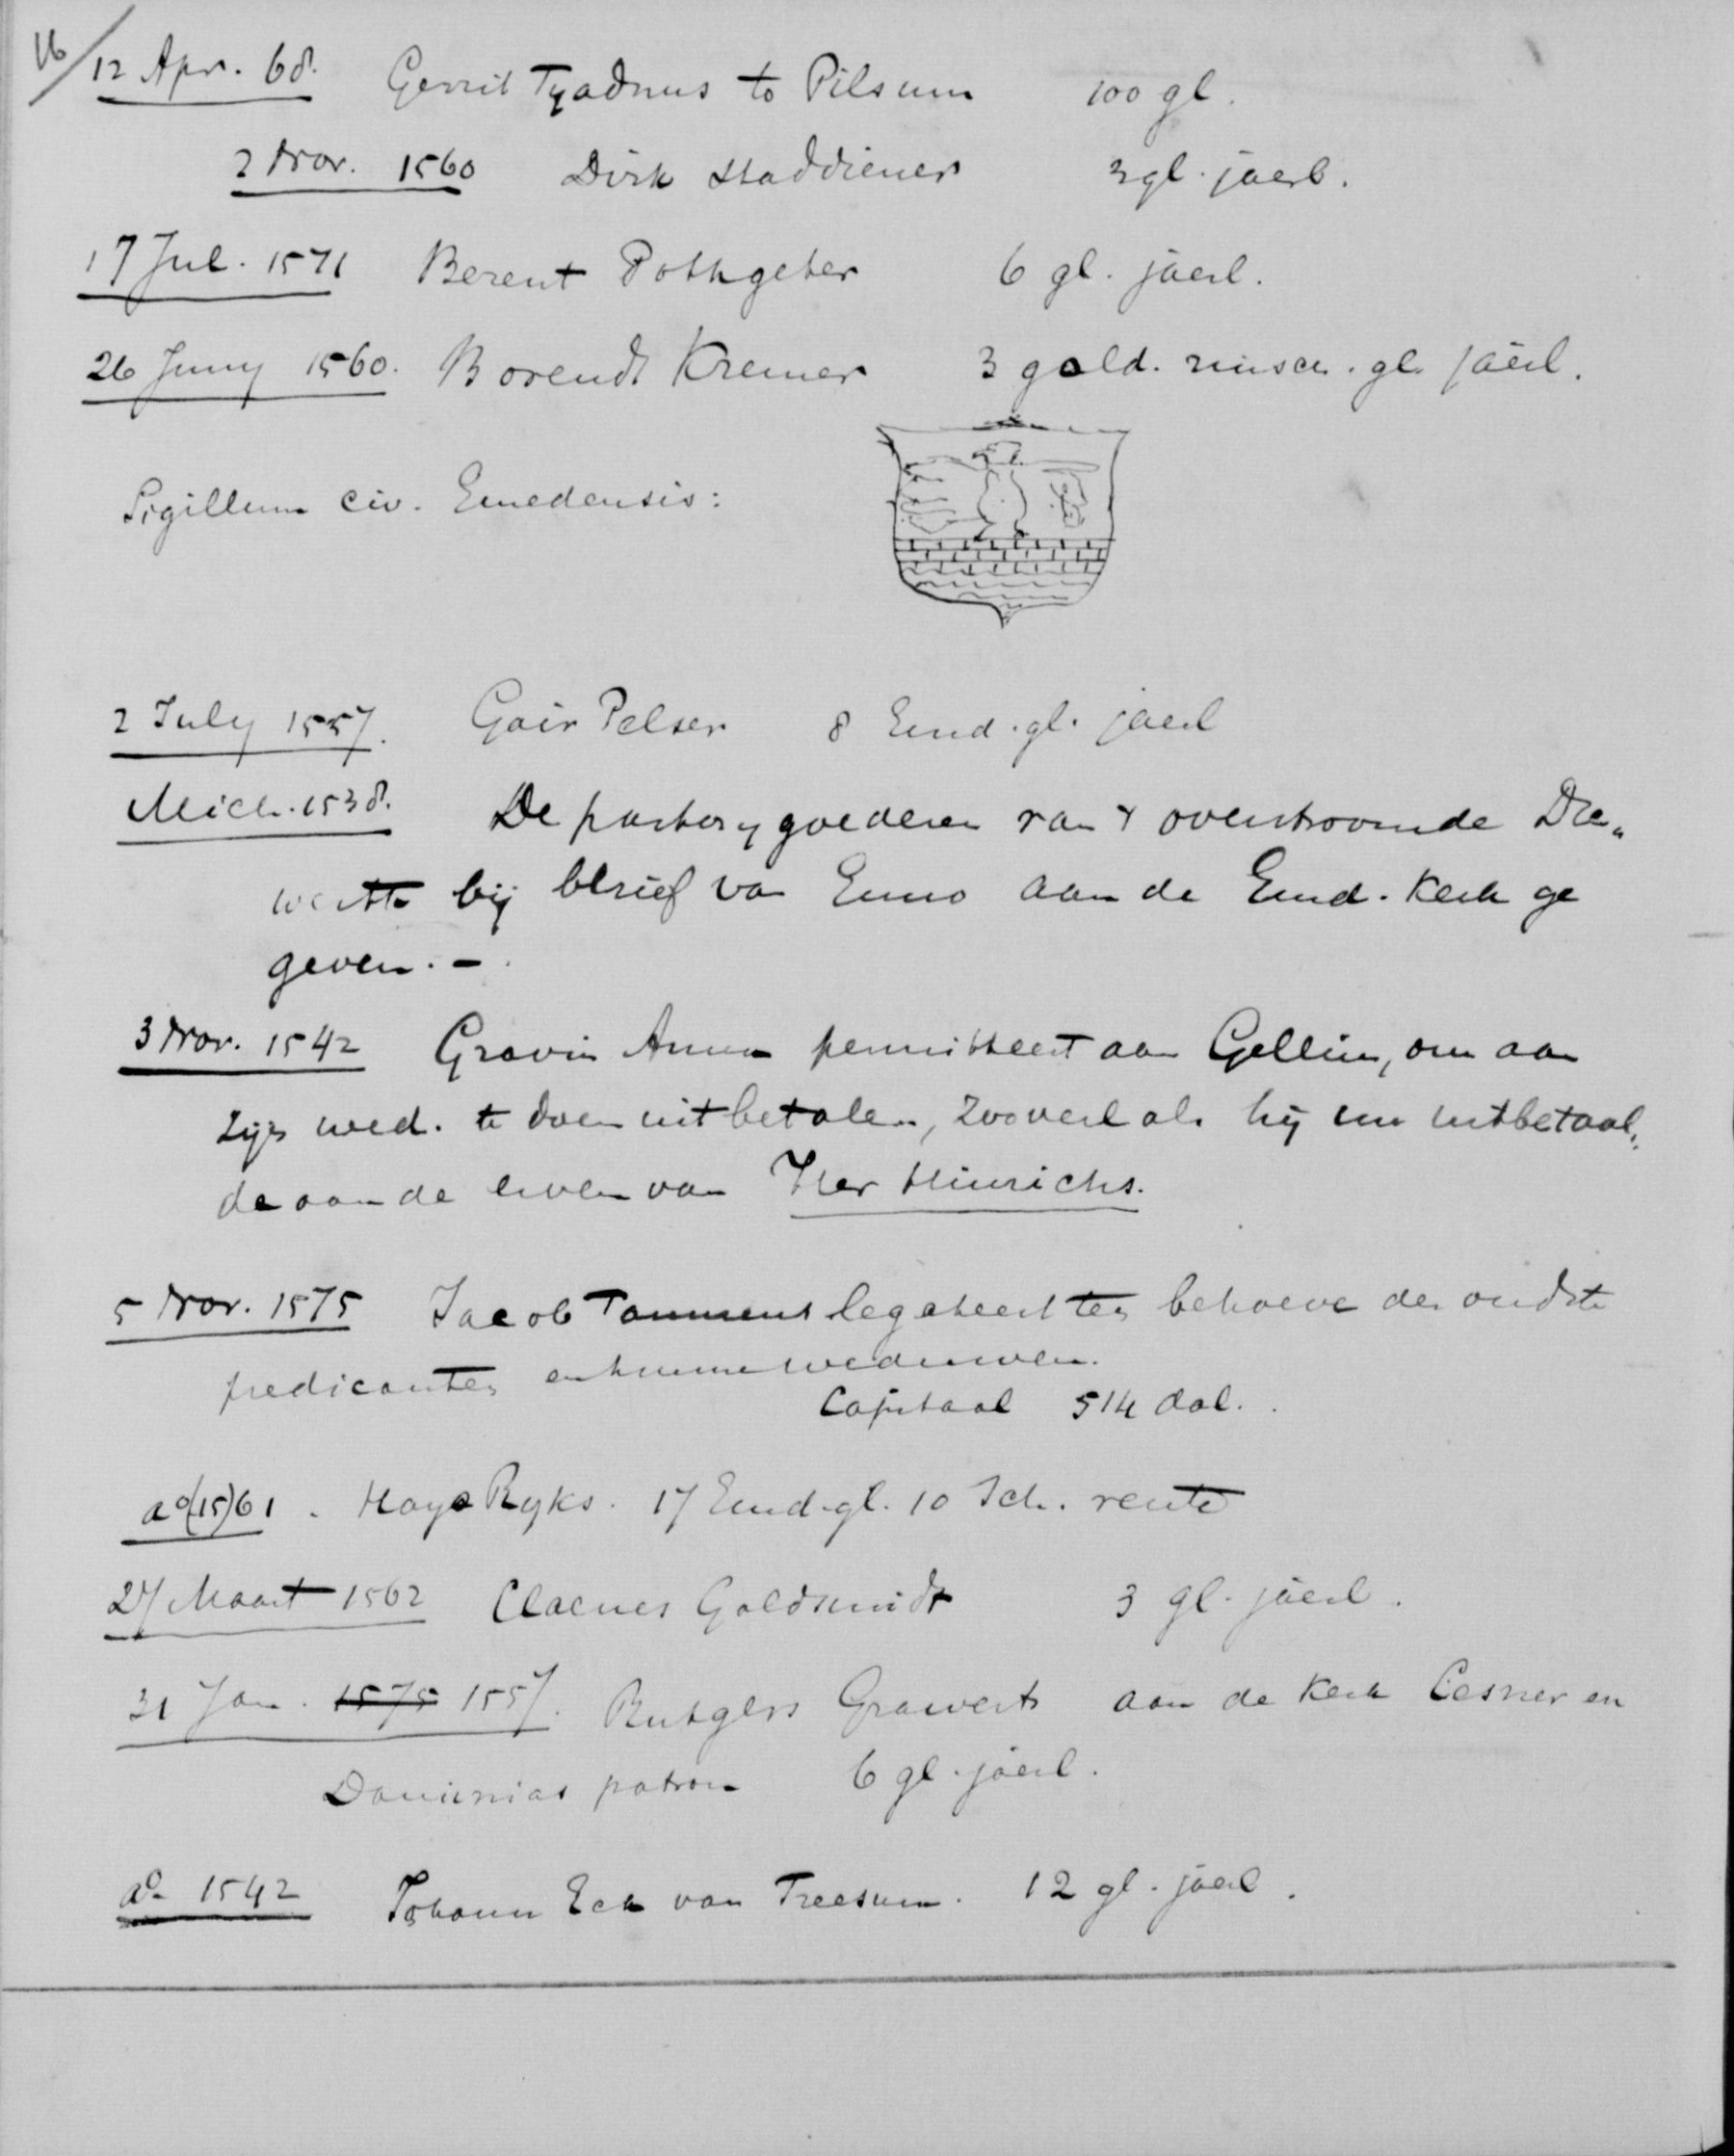 16/
12 Apr. 68. Gerrit Tyadmus to Pilsum 100 gl.
2 Nov. 1560 Dirk Staddiener 3 gl. jaerl.
17 Jul. 1571 Berent Pothgeter 6 gl. jaerl.
26 Juny 1560. Borendt Kremer 3 gold. rinsch. gl. jaerl.
Sigillum civ. Emedensis:
2 July 1557. Goir Pelser 8 Emd. gl. jaerl
Mich. 1538. De pastory goederen van 't overstroomde
bij brief van Enno aan de Emd. Kerk ge
geven. -
3 Nov. 1542 Gravin Anna permitteert aan Gellium, om aan
zijn wed. te doen uitbetalen, zooveel als hij nu uitbetaal,,
de aan de erven van Her Hinrichs.
5 Nov. 1575 Jacob Tammens legateert ten behoeve der oudste
predicanten en hunne weduwen.
Capitaal 514 dal.
ao (15)61. Hayo Ryks. 17 Emd. gl. 10 Sch. rente
27 Maart 1562 Claenes Goldsmidt 3 gl. jaerl.
31 Jan. 1575 1557. Rutgers Grawerts aan de Kerk en
patron 6 gl. jaerl.
ao. 1542 Johann Eck van Treesum. 12 gl. jaerl.